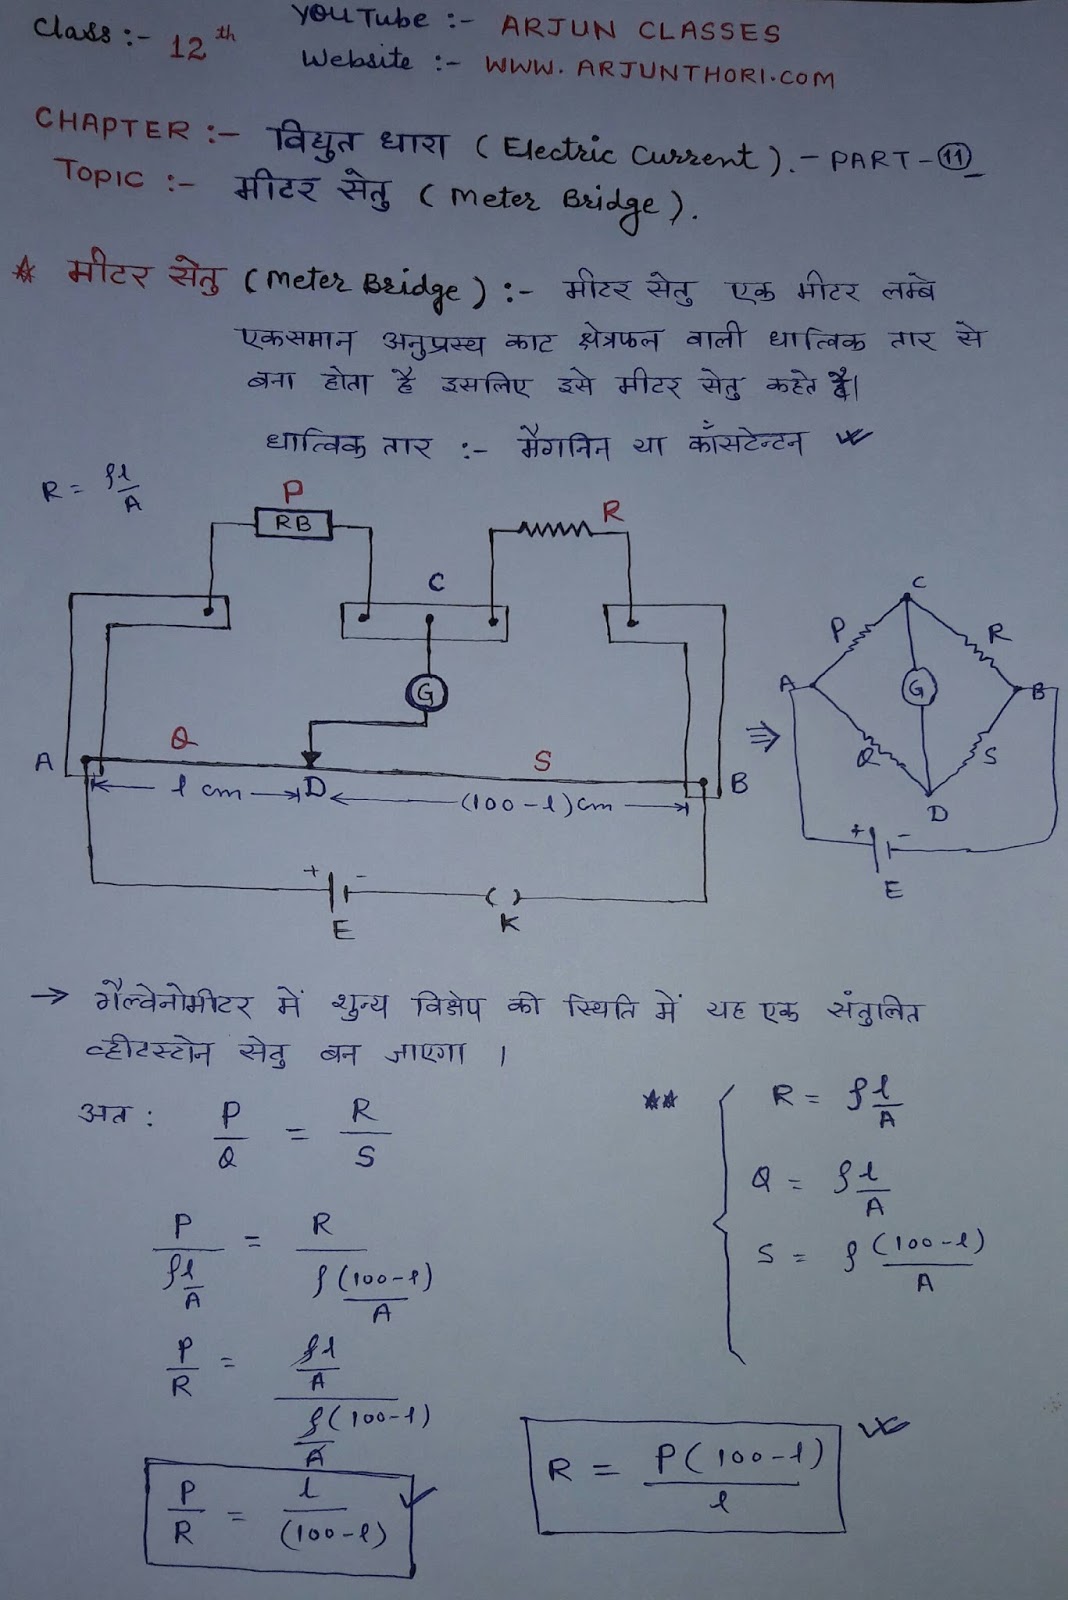 Class :- 12th
YouTube :- ARJUN CLASSES
Website :- WWW.ARJUNTHORI.COM
CHAPTER :- विद्युत धारा (Electric Current). - PART - 11
TOPIC :- मीटर सेतु (Meter Bridge).
☆ मीटर सेतु (Meter Bridge) :- मीटर सेतु एक मीटर लम्बे
एकसमान अनुप्रस्थ काट क्षेत्रफल वाली धात्विक तार से
बना होता है इसलिए इसे मीटर सेतु कहते है।
धात्विक तार :- मैगनिन या काँसटेन्टन
R = ρl/A
P
RB
R
C
G
Q
S
A
D
B
l cm
(100-l)cm
+ -
E
K
⇒
C
P
R
A
G
B
Q
S
D
+ -
E
→ गैल्वेनोमीटर में शुन्य विक्षेप की स्थिति में यह एक संतुलित
व्हीटस्टोन सेतु बन जाएगा ।
अत: P/Q = R/S
** R = ρl/A
Q = ρl/A
S = ρ(100-l)/A
P/(ρl/A) = R/(ρ(100-l)/A)
P/R = (ρl/A)/(ρ(100-l)/A)
P/R = l/(100-l)
R = P(100-l)/l